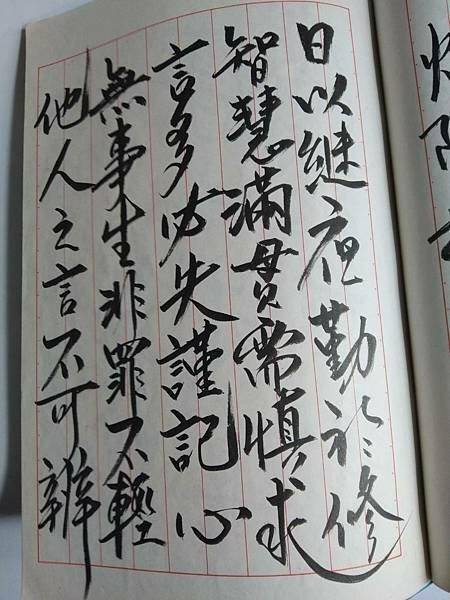 日以継夜勤於修
智慧滿貫需慎求
言多必失謹記心
無事生非罪不輕
他人之言不可辨